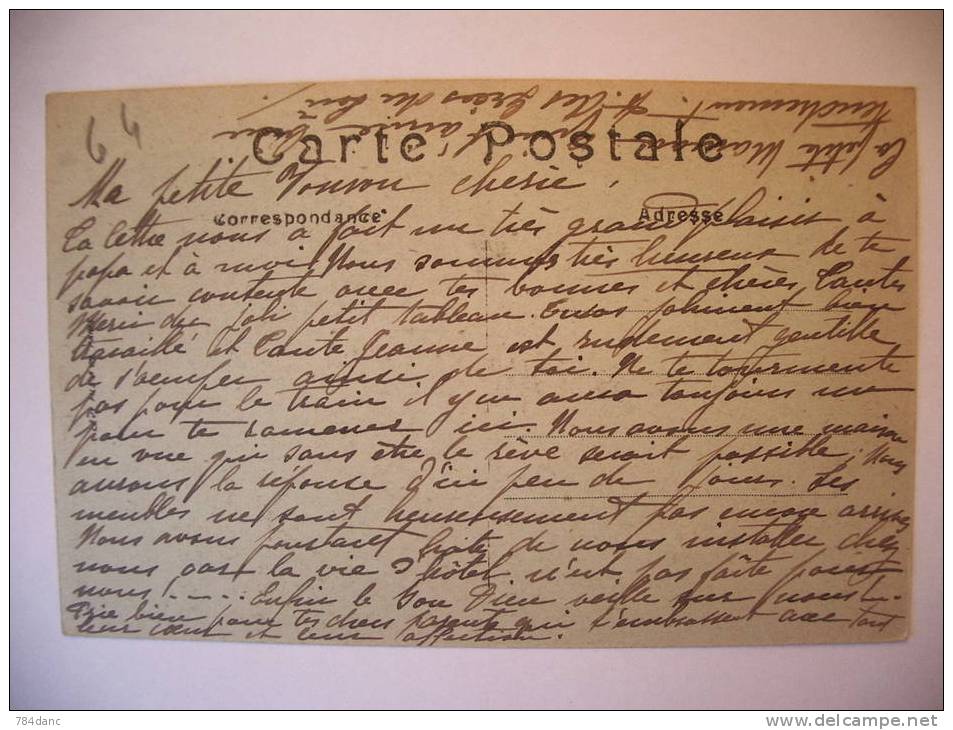 64
Carte Postale
Ma petite chérie,
Correspondance
Adresse
Ta lettre nous a fait un très grand plaisir à
papa et à moi. Nous sommes très heureux de te
savoir contente avec tes bonnes et chères Tantes
Merci du joli petit tableau. Tu as joliment bien
travaillé et Tante Jeanne est rudement gentille
de s'occuper ainsi de toi. Ne te tourmente
pas pour le train il y en aura toujours un
pour te ramener ici. Nous avons une maison
en vue qui sans être le rêve serait possible, nous
aurons la réponse d'ici peu de jours. Les
meubles ne sont heureusement pas encore arrivés
Nous avons pourtant hâte de nous installer chez
nous car la vie d'hôtel n'est pas faite pour
nous..... Enfin le bon Dieu veille sur nous.
Prie bien pour tes chers parents qui t'embrassent avec tout
leur cœur et leur affection.
La petite
784danc
www.delcampe.net